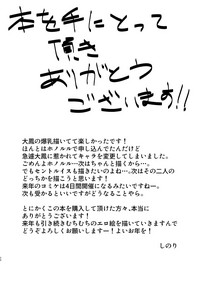 本を手にとって
頂き
ありがとう
ございます!!
大鳳の爆乳描いてて楽しかったです!
ほんとはホノルルで申し込んでたんだけど
急遽大鳳に惹かれてキャラを変更してしまいました。
ごめんよホノルル…次はちゃんと描くから…。
でもセントルイスも描きたいのよね…。次はその二人の
どっちかを描こうと思います!
来年のコミケは4日間開催になるみたいですねー。
次も受かるといいですがどうなることやら…。
とにかくこの本を購入して頂けた方々、本当に
ありがとうございます!
今年も引き続きむちむちのエロ絵を描いていきますんで
どうぞよろしくお願いしますー!よいお年を!
しのり